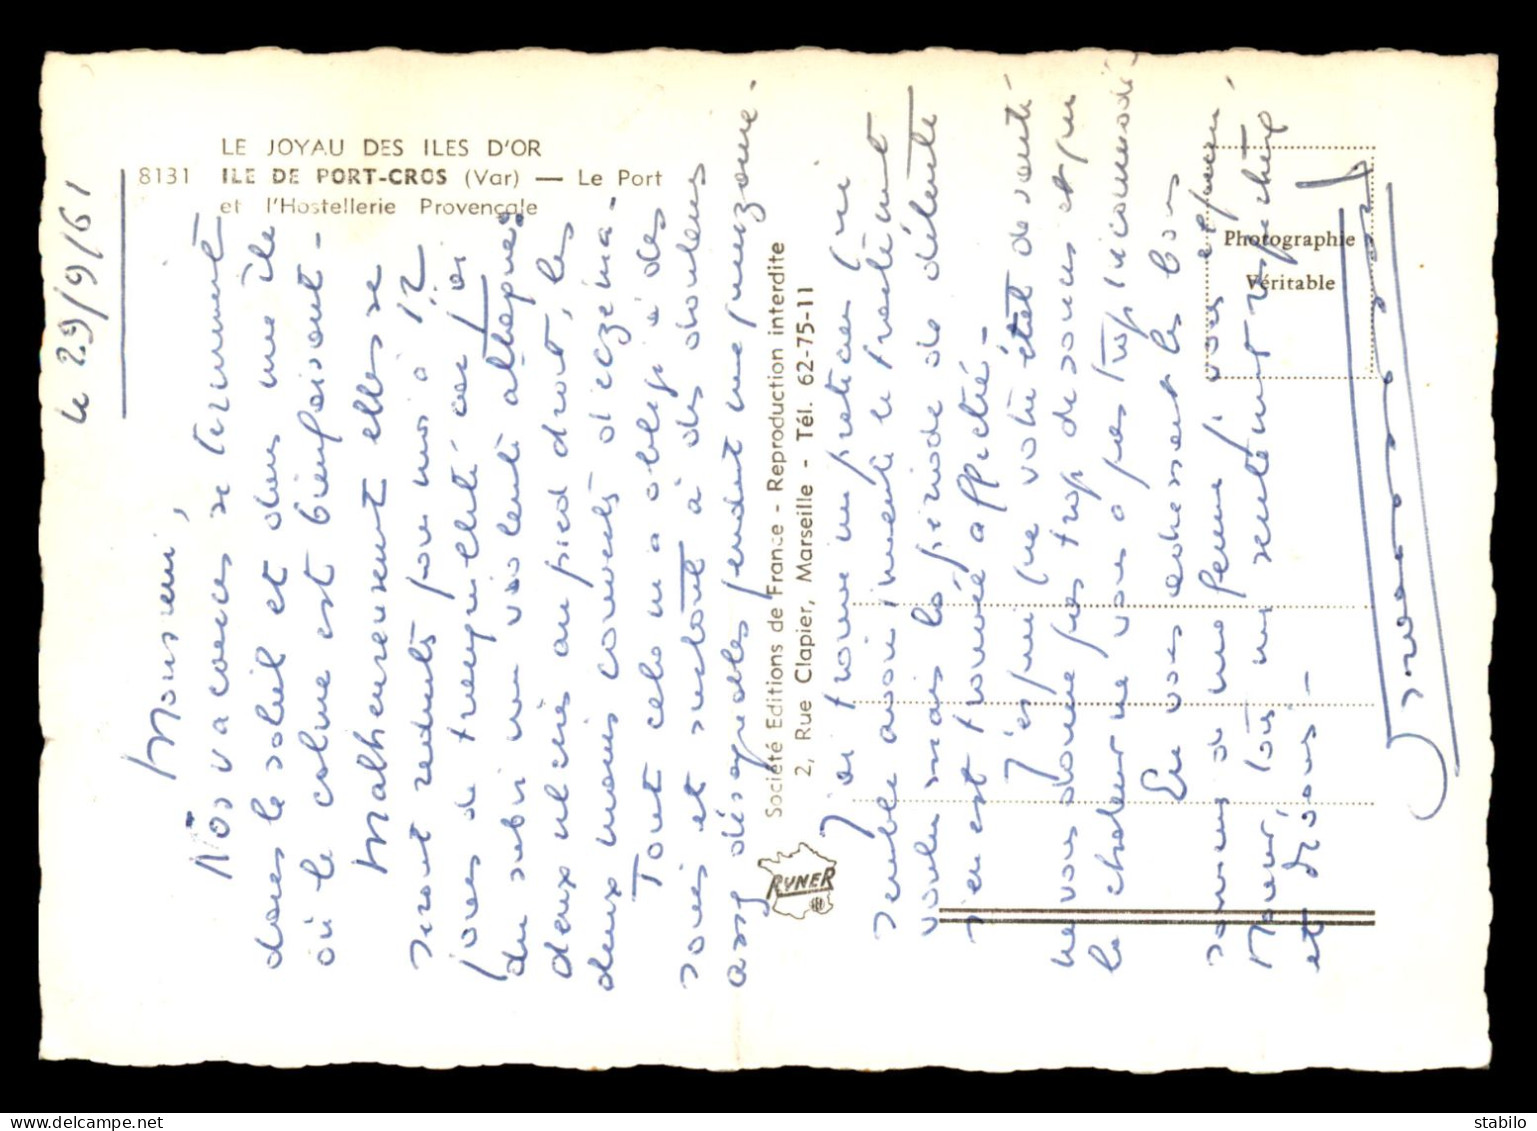 LE JOYAU DES ILES D'OR
8131 ILE DE PORT-CROS (Var) — Le Port
et l'Hostellerie Provençale
Société Editions de France - Reproduction interdite
2, Rue Clapier, Marseille - Tél. 62-75-11
RYNER
Photographie
Véritable
le 29/9/61
Monsieur,
Nos vacances se terminent
dans le soleil et dans une île
où le calme est bienfaisant -
Malheureusement elles se
seront réduites pour moi à 12
jours de tranquillité car j'ai
du subir une violente attaque:
deux ulcères au pied droit, les
deux mains couvertes d'eczéma -
Tout cela m'a obligé à des
soins et surtout à des douleurs
assez désagréables pendant une quinzaine -
J'ai trouvé un praticien qui
semble avoir juste le traitement
voulu mais la période de détente
s'en est trouvée affectée -
J'espère que votre état de santé
ne vous donne pas trop de soucis et que
la chaleur ne vous a pas trop incommodé -
En vous adressant les bons
souvenirs de ma femme, vous
Monsieur, tous mes sentiments respectueux
et dévoués -